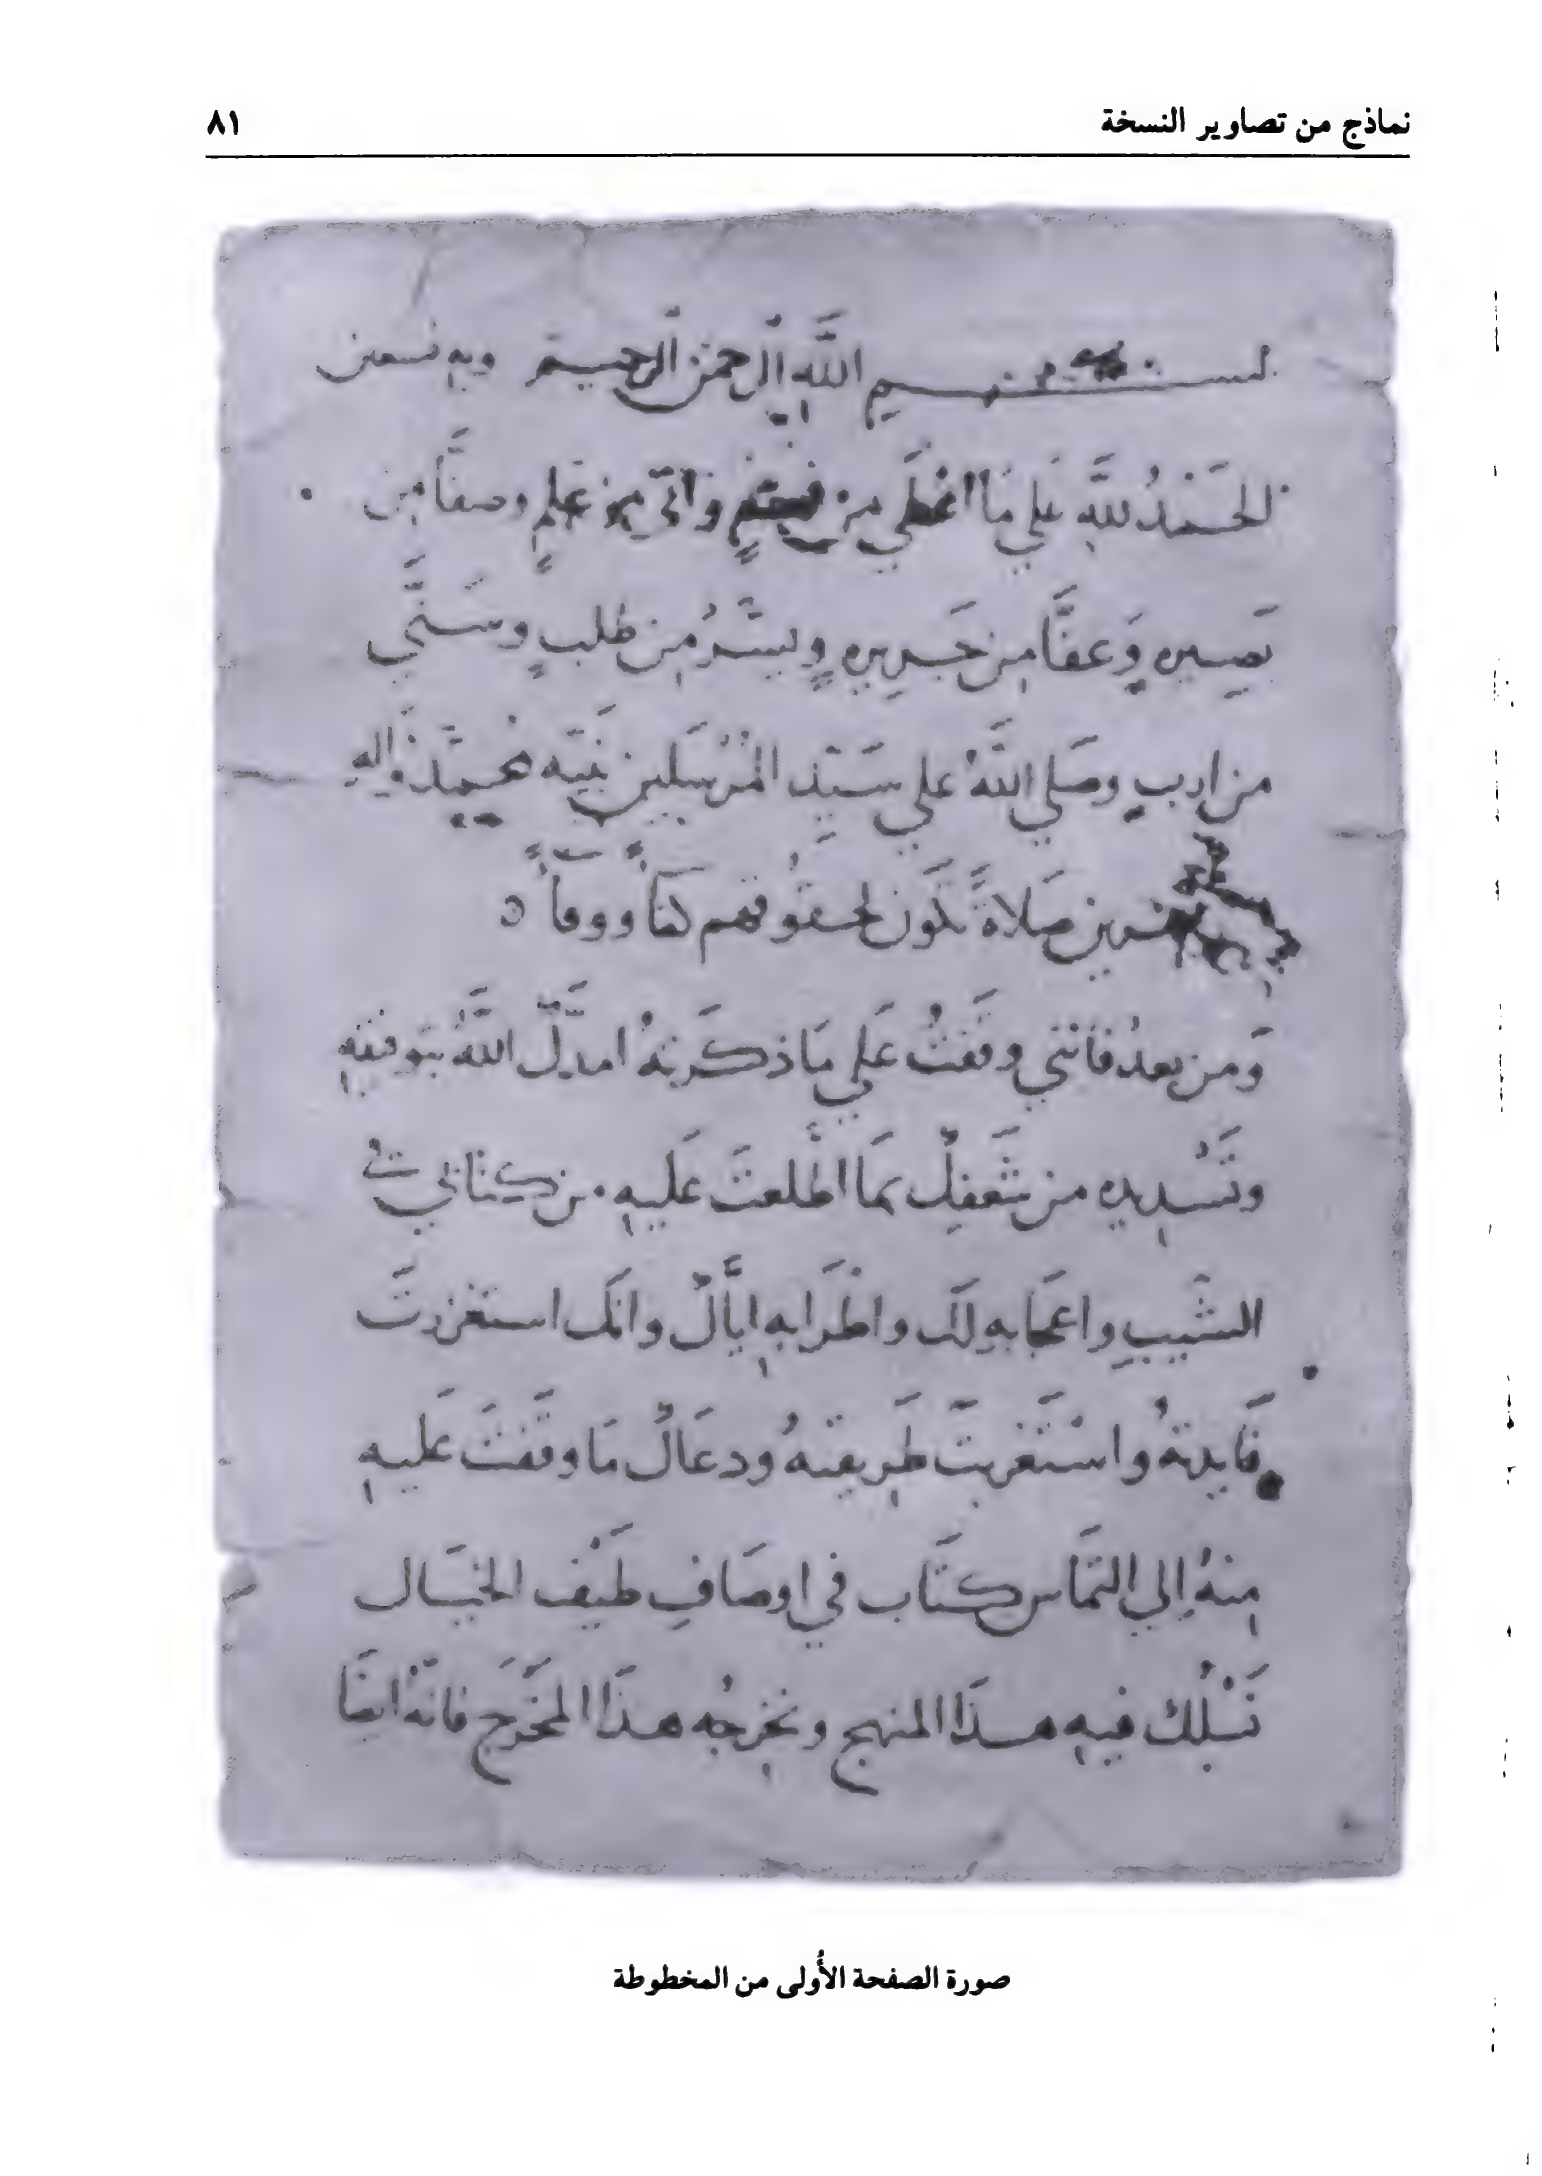 نماذج من تصاوير النسخة ٨١
بسم اللَّهِ الرحمن الرحيم وبه نستعين
الحَمْدُ للَّهِ عَلي مَا اعْطَي من واتَي من عِلمٍ وصفَّا من
بَصِيره وَعفَّا مِن جَرِيره ويسَّرُ مِن طلبٍ وسَنَّي
من اربٍ وصَلي اللَّهُ علي سَيّدِ المُرْسَلين نبيّه مُحمَّد وَالِه
صَلاةً تكَون لحقُوقهم كفَأً ووفأً
وَمن بعدُ فانَني وقَفتُ عَلي مَا ذكَرتهُ امدَّكَ اللَّهُ بتَوفيقِهِ
وتَسْدِيدِه من شَعفِك بمَا اطَّلعتَ عَليهِ من كتابي في
الشَيبِ واعجَابهِ لكَ واطرَابهِ ايَّاكَ وانكَ استغزرتَ
فَايدتهُ واسْتَغربتَ طَرِيقتهُ ودعَاكَ مَا وقَفتَ عَليهِ
مِنهُ اِلي التمَاس كتَاب في اوصَافِ طَيْف الخيَال
نَسْلُك فيهِ هذَا المنهج ونخرِجُه هذَا المخرَج فانَّهُ ايضَا
صورة الصفحة الأُولى من المخطوطة